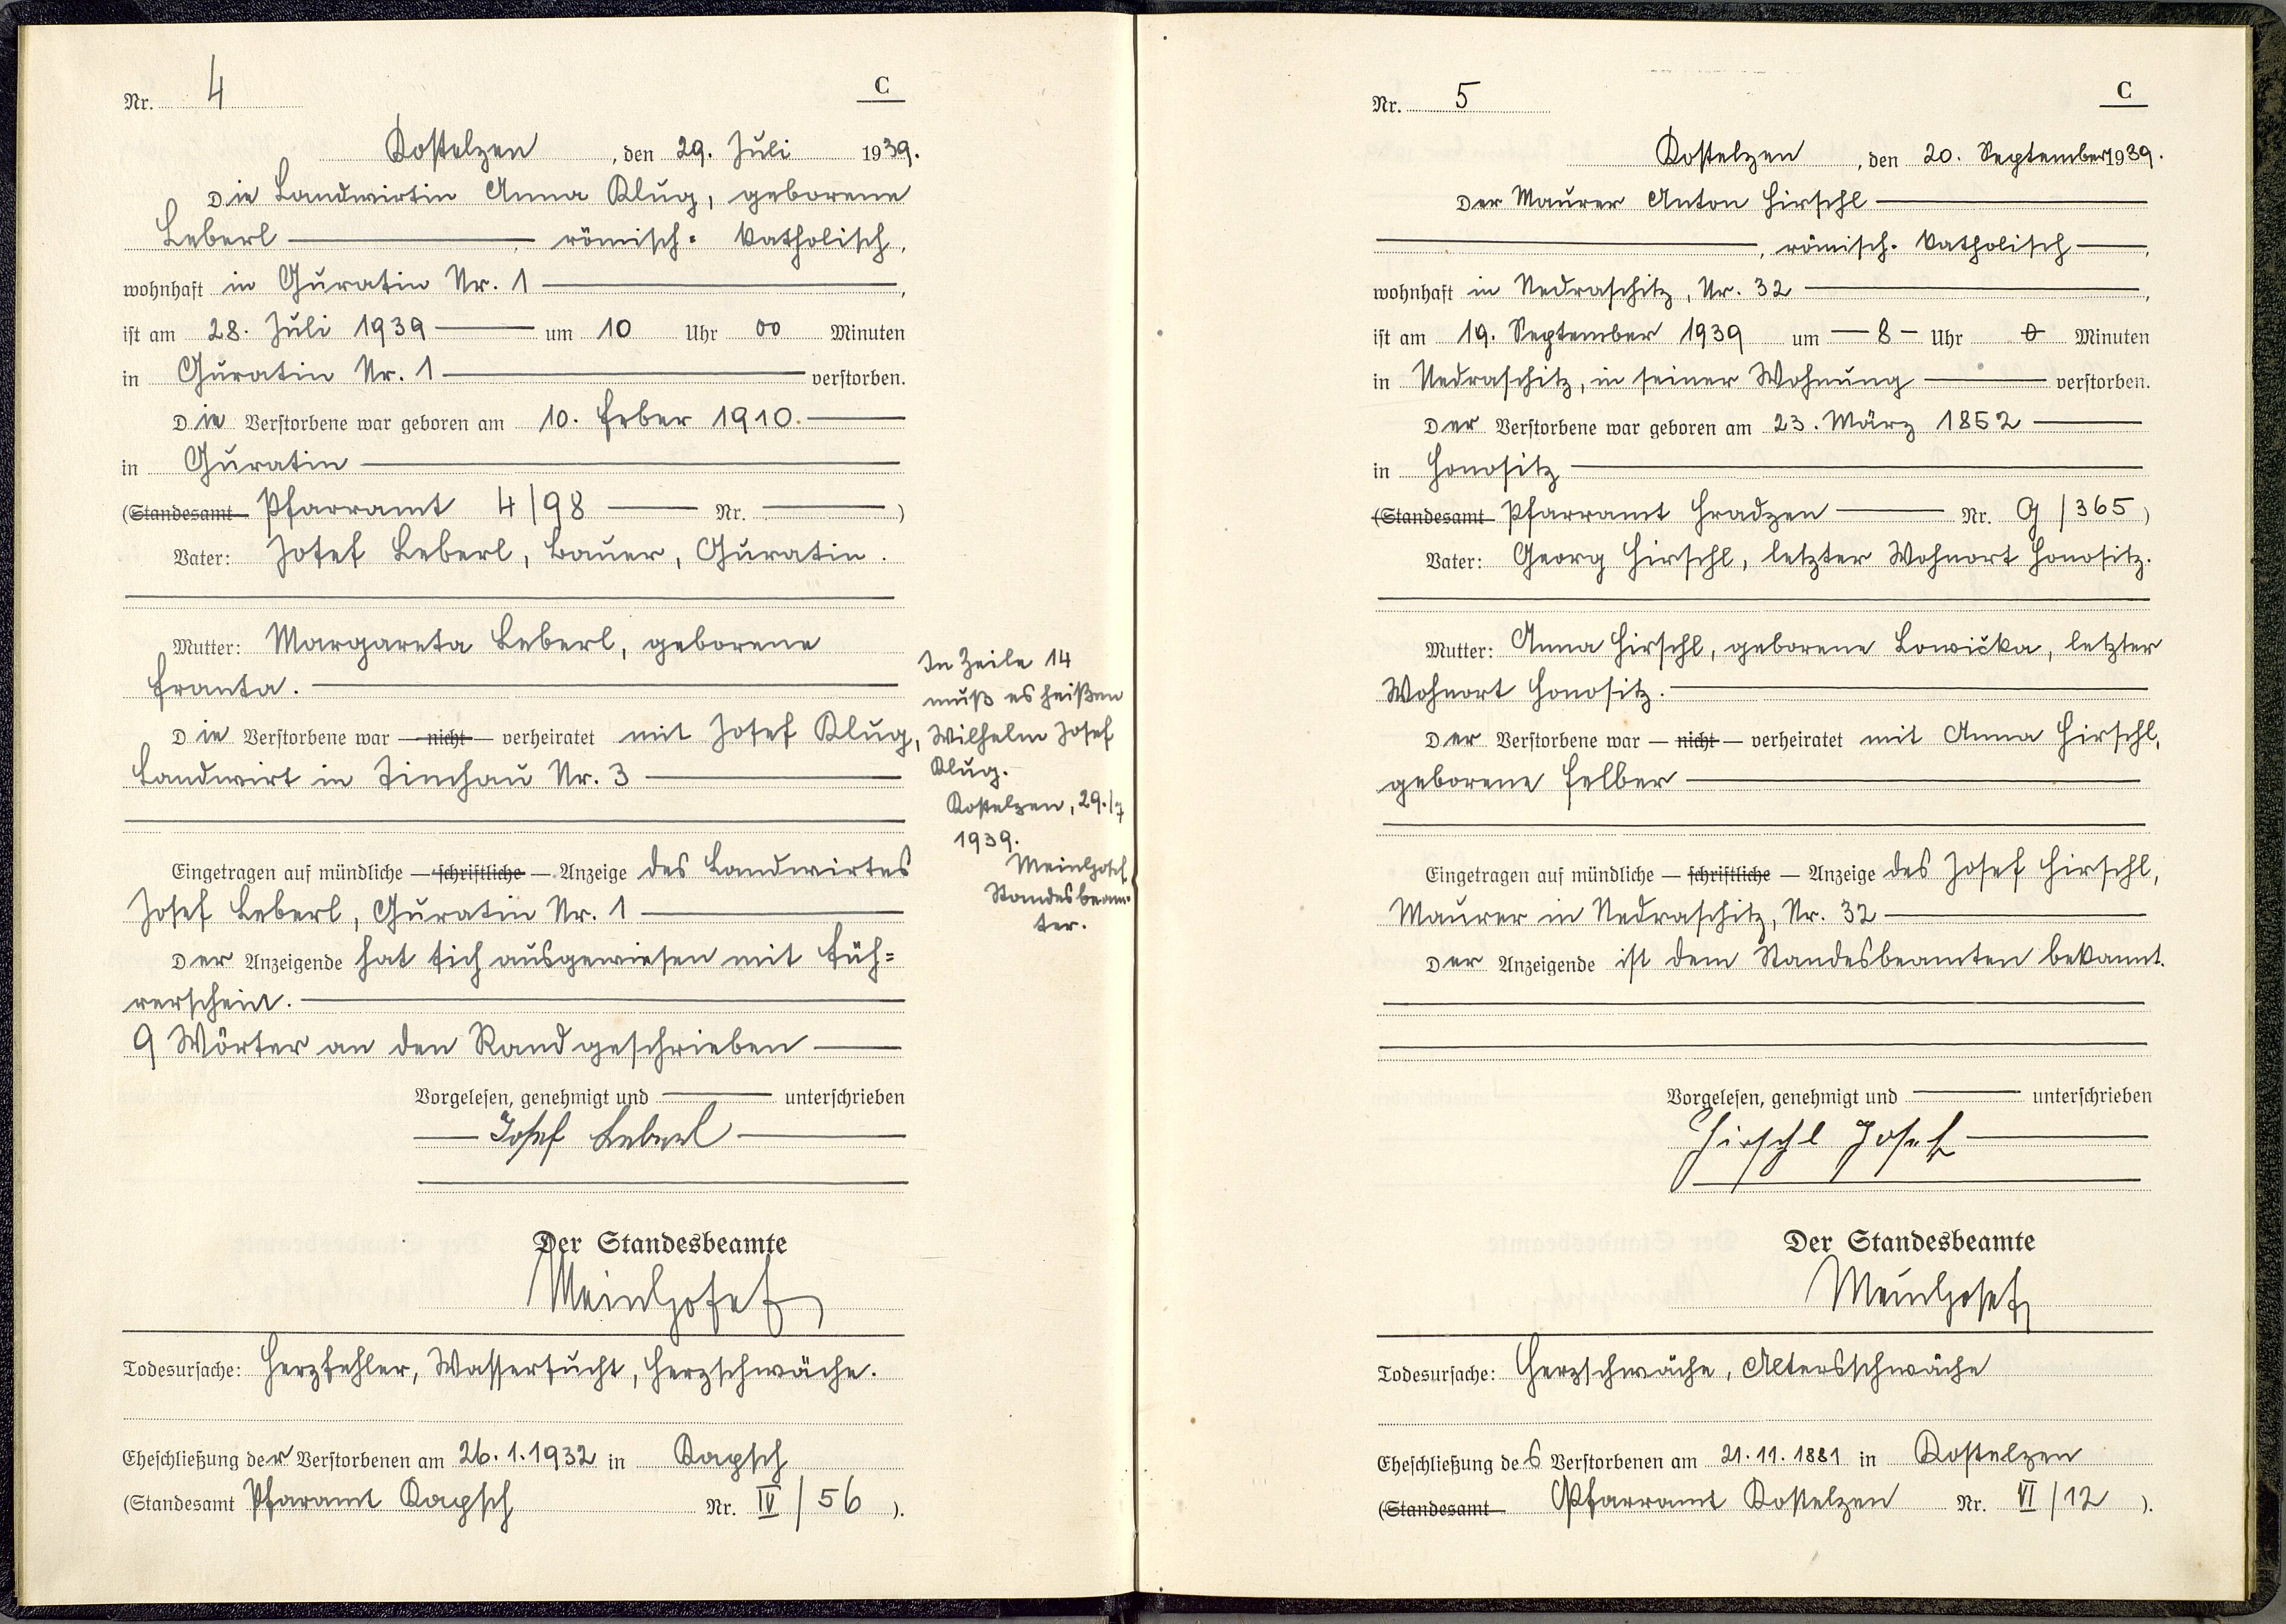 Nr. 4
C
Kostelzen, den 29. Juli 1939.
Die Landwirtin Anna Klug, geborene
Leberl römisch-katholisch,
wohnhaft in Guratin Nr. 1,
ist am 28. Juli 1939 um 10 Uhr 00 Minuten
in Guratin Nr. 1 verstorben.
Die Verstorbene war geboren am 10. Feber 1910.
in Guratin
(Standesamt Pfarramt 4/98 Nr. )
Vater: Josef Leberl, Bauer, Guratin.
Mutter: Margareta Leberl, geborene
Franta.
Die Verstorbene war — nicht — verheiratet mit Josef Klug,
Landwirt in Zimchau Nr. 3
Eingetragen auf mündliche — schriftliche — Anzeige des Landwirtes
Josef Leberl, Guratin Nr. 1
Der Anzeigende hat sich ausgewiesen mit Füh=
rerschein.
9 Wörter an den Rand geschrieben
Vorgelesen, genehmigt und unterschrieben
Josef Leberl
Der Standesbeamte
Meinl Josef
Todesursache: Herzfehler, Wassersucht, Herzschwäche.
Eheschließung der Verstorbenen am 26.1.1932 in Kapsch
(Standesamt Pfaramt Kapsch Nr. IV/56 ).
In Zeile 14
muß es heißen
Wilhelm Josef
Klug.
Kostelzen, 29./7
1939.
Meinl Josef
Standesbeam-
ter.
Nr. 5
C
Kostelzen, den 20. September 1939.
Der Maurer Anton Hirschl
, römisch-katholisch,
wohnhaft in Nedraschitz, Nr. 32,
ist am 19. September 1939 um — 8 — Uhr 0 Minuten
in Nedraschitz, in seiner Wohnung verstorben.
Der Verstorbene war geboren am 23. März 1852
in Honositz
(Standesamt Pfarramt Hradzen Nr. 9/365)
Vater: Georg Hirschl, letzter Wohnort Honositz.
Mutter: Anna Hirschl, geborene Lowička, letzter
Wohnort Honositz.
Der Verstorbene war — nicht — verheiratet mit Anna Hirschl,
geborene Felber
Eingetragen auf mündliche — schriftliche — Anzeige des Josef Hirschl,
Maurer in Nedraschitz, Nr. 32
Der Anzeigende ist dem Standesbeamten bekannt.
Vorgelesen, genehmigt und unterschrieben
Hirschl Josef
Der Standesbeamte
Meinl Josef
Todesursache: Herzschwäche, Altersschwäche
Eheschließung des Verstorbenen am 21.11.1881 in Kostelzen
(Standesamt Pfarramt Kostelzen Nr. VI/12 ).